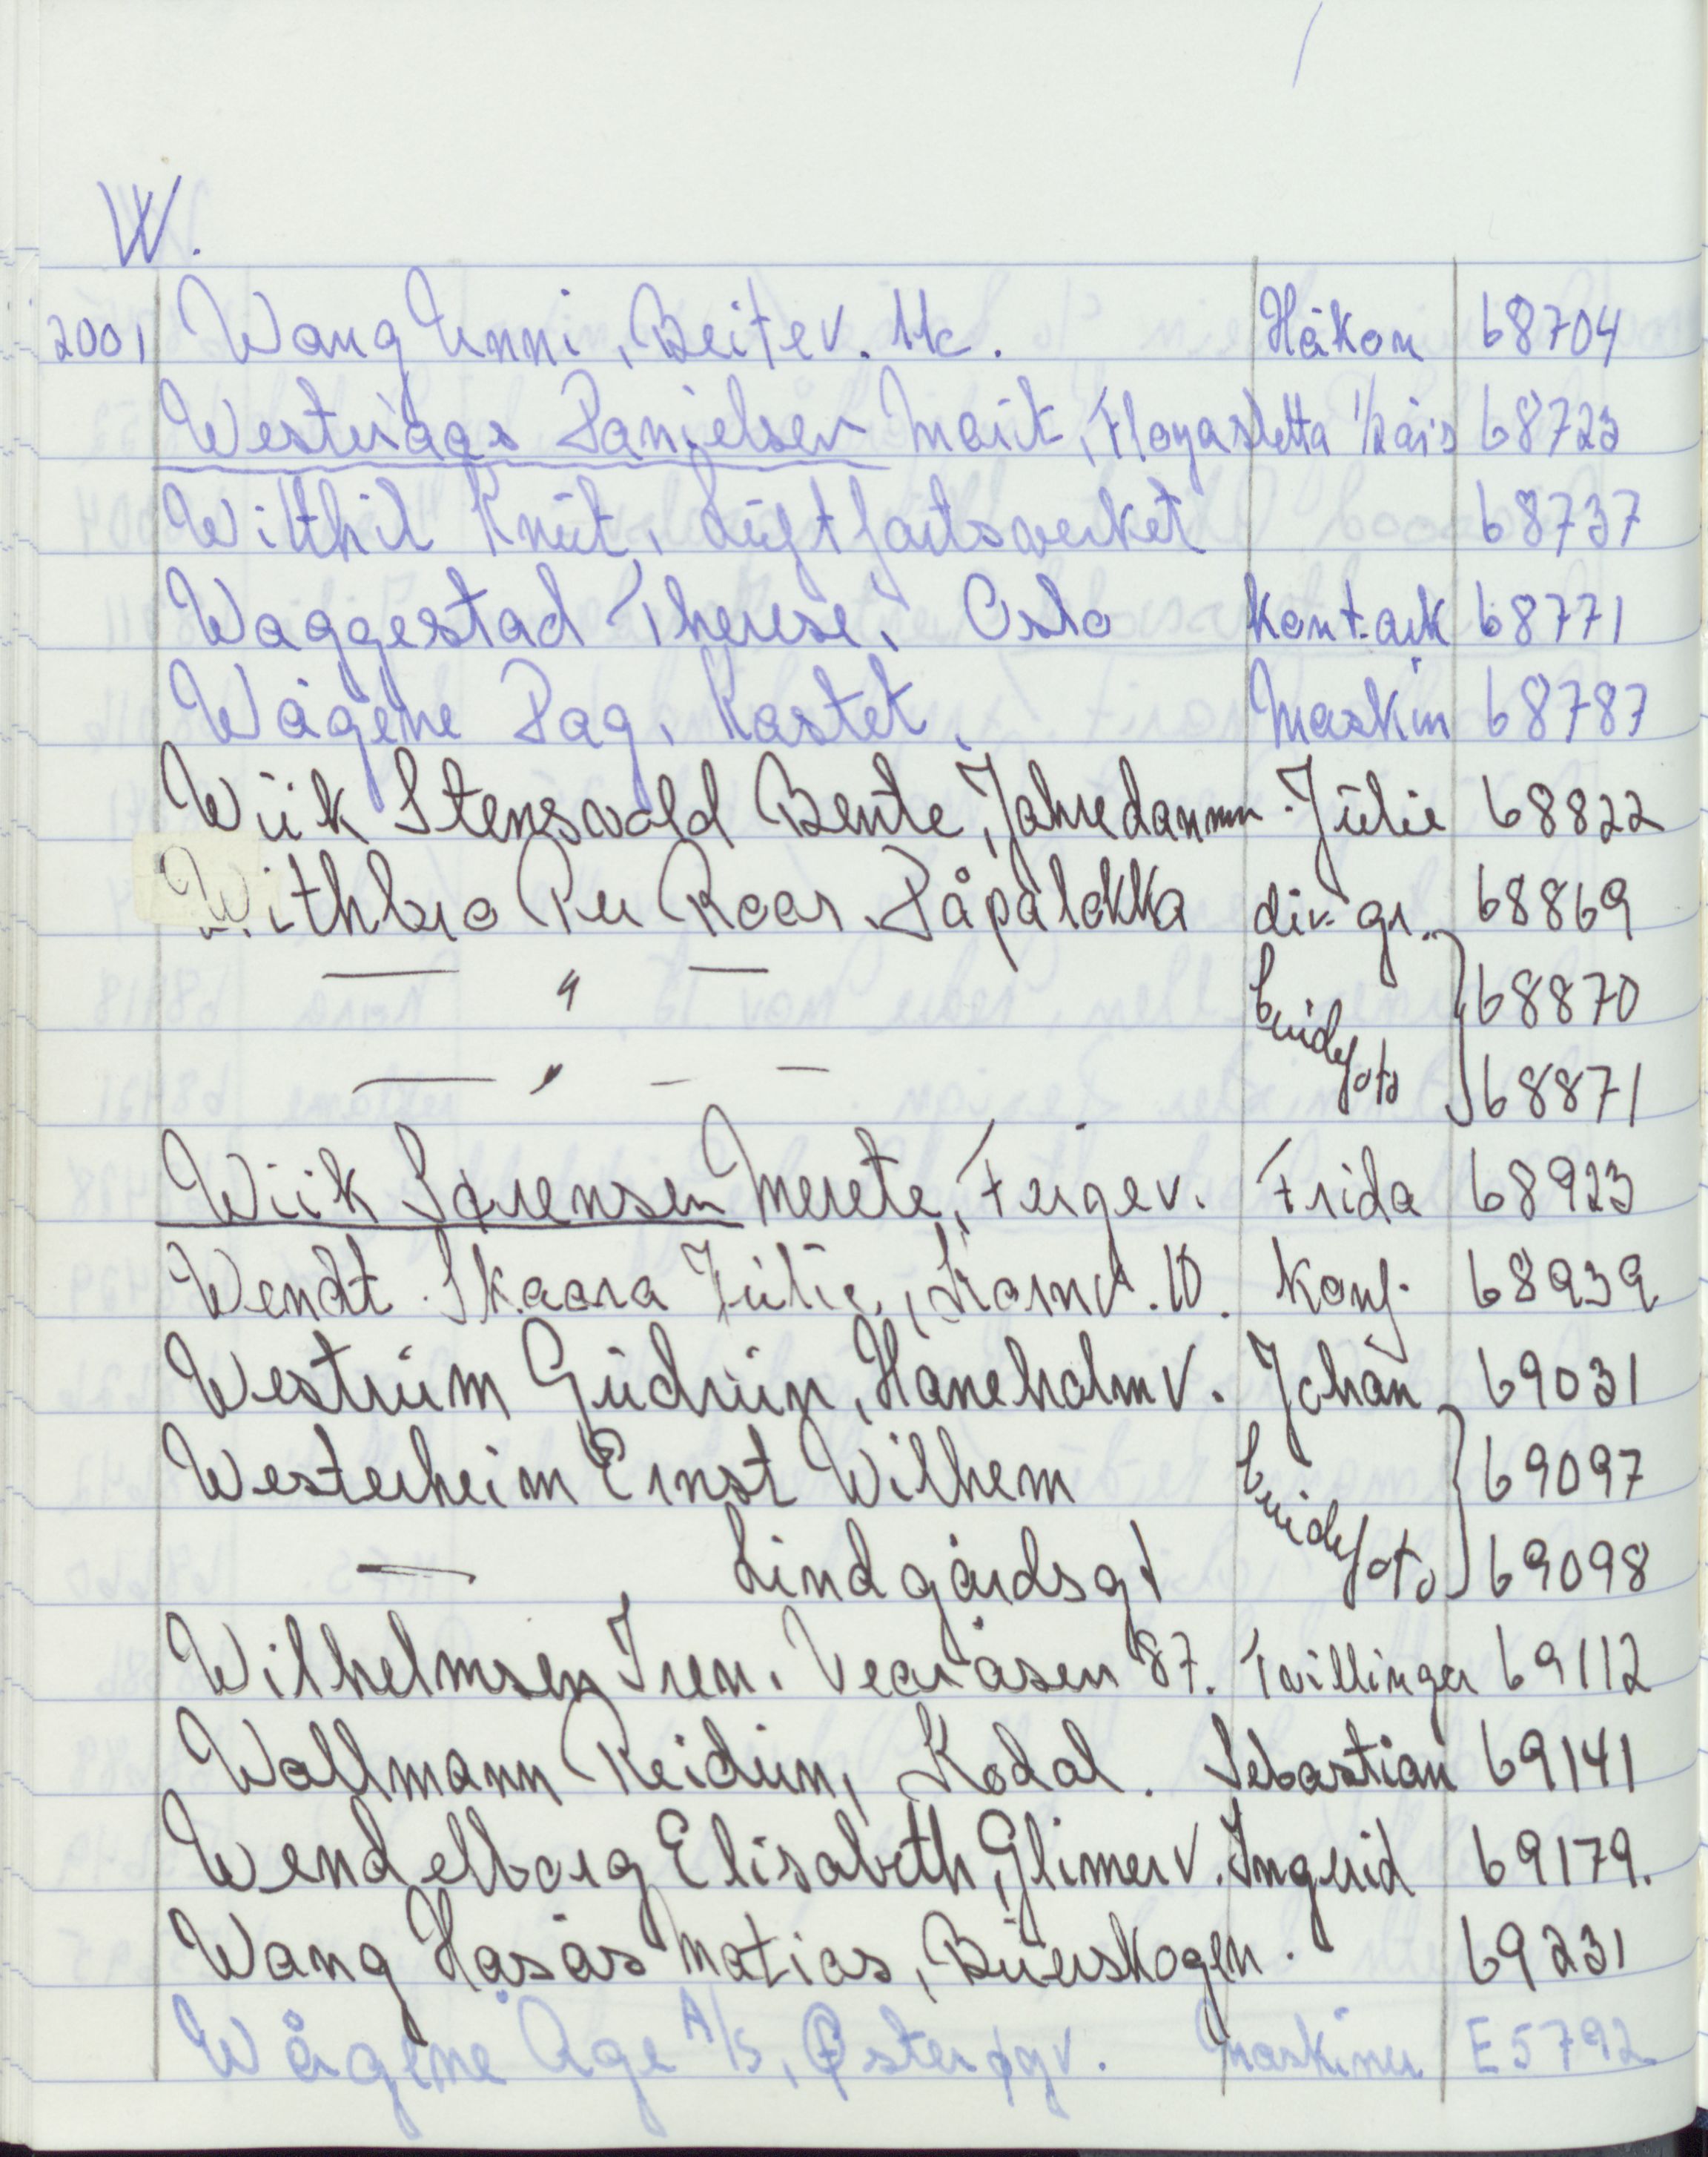 W.
2001 Wang Unni, Beitev. 11c. Håkon 68704
Westvågs Danielsen Marit, Fløyasletta 1/2 års 68723
Withil Knut, Luftfartsverket 68737
Waggestad Therese, Oslo kont.ark 68771
Wågene Dag, Kastet. Maskin 68787
Wiik Stensvold Bente, Jahredammn. Julie 68822
Withbro Per Roar. Påpaløkka div. gr. 68869
— " — brudefoto 68870
— " — — 68871
Wiik Sørensen Merete, Fergev. Frida 68923
Wendt Skaara Julie, Kornv. 10. Konf. 68939
Westrum Gudrun, Haneholmv. Johan 69031
Westerheim Ernst Wilhem brudefoto 69097
— Lindgårdsgt 69098
Wilhelmsen Iren. Vearåsen 87. Tvillinger 69112
Wollmann Reidun, Kodal. Sebastian 69141
Wendelborg Elisabeth, Glimerv. Ingrid 69179.
Wang Hasås Matias, Buerskogen. 69231
Wågene Åge A/S, Østerøyv. maskiner E5792